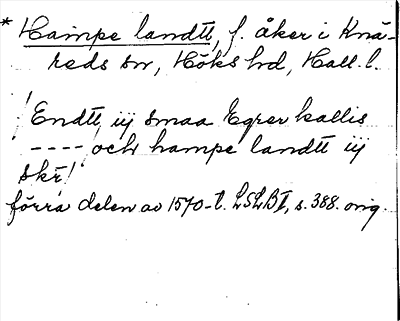 * Hampe landtt, f. åker i Knä-
reds sn, Höks hd, Hall. l.
! Endtt iij smaa Egrer kallis
---- och hampe landtt iij
skr!
förra delen av 1570-t. LSLB I, s. 388. orig.